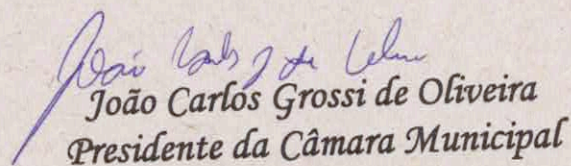 João Carlos Grossi de Oliveira
Presidente da Câmara Municipal